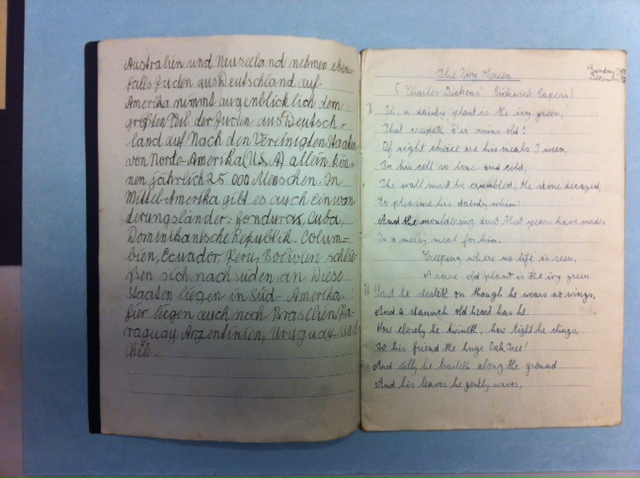 Australien und Neuseeland nehmen eben-
falls Juden aus Deutschland auf
Amerika nimmt augenblicklich den
größten Teil der Juden aus Deutsch-
land auf. Nach den Vereinigten Staaten
von Norde-Amerika (U.S.A) allein kön-
nen jährlich 25 000 Menschen. In
Mittel-Amerika gibt es auch Einwan-
derungsländer: Honduras, Cuba,
Dominikanische Republik. Colum-
bien, Ecuador, Peru, Bolivien schlie-
ßen sich nach süden an Diese
Staaten liegen in Süd-Amerika.
Hier liegen auch noch Brasilien, Pa-
raguay, Argentinien, Uruguay und
Chile.
The Ivy Green
Sunday
(Charles Dickens' Pickwick Papers)
Oh, a dainty plant is the ivy green,
That creepeth o'er ruins old!
Of right choice are his meals I ween,
In his cell so lone and cold,
The wall must be crumbled, the stone decayed,
To pleasure his dainty whim:
And the mouldering dust that years have made
Is a merry meal for him.
Creeping where no life is seen,
A rare old plant is the ivy green
Fast he stealth on though he wears no wings,
And a staunch old heart has he.
How closely he twineth, how tight he clings,
To his friend the huge Oak Tree!
And silly he traileth along the ground
And his leaves he gently waves,